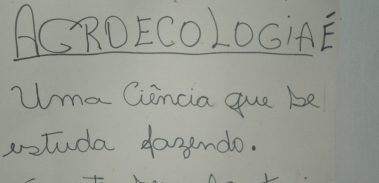 AGROECOLOGIA É
Uma Ciência que se
estuda fazendo.